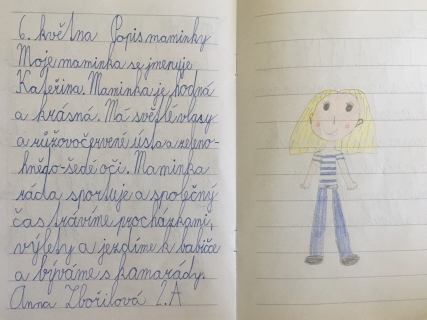 6. května Popis maminky
Moje maminka se jmenuje
Kateřina. Maminka je hodná
a krásná. Má světlé vlasy
a růžovočervené ústa a zeleno-
hnědo-šedé oči. Maminka
ráda sportuje a společný
čas trávíme procházkami,
výlety a jezdíme k babičce
a býváme s kamarády.
Anna Zbořilová 2.A